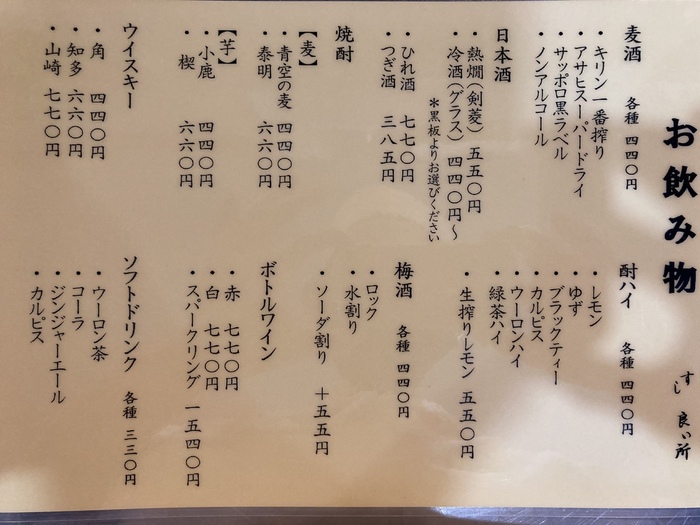 お飲み物
すし 良い所
麦酒 各種 四四〇円
・キリン一番搾り
・アサヒスーパードライ
・サッポロ黒ラベル
・ノンアルコール
日本酒
・熱燗(剣菱) 五五〇円
・冷酒(グラス) 四四〇円〜
*黒板よりお選びください
・ひれ酒 七七〇円
・つぎ酒 三八五円
焼酎
【麦】
・青空の麦 四四〇円
・泰明 六六〇円
【芋】
・小鹿 四四〇円
・楔 六六〇円
ウイスキー
・角 四四〇円
・知多 六六〇円
・山崎 七七〇円
酎ハイ 各種 四四〇円
・レモン
・ゆず
・ブラックティー
・カルピス
・ウーロンハイ
・緑茶ハイ
・生搾りレモン 五五〇円
梅酒 各種 四四〇円
・ロック
・水割り
・ソーダ割り +五五円
ボトルワイン
・赤 七七〇円
・白 七七〇円
・スパークリング 一五四〇円
ソフトドリンク 各種 三三〇円
・ウーロン茶
・コーラ
・ジンジャーエール
・カルピス